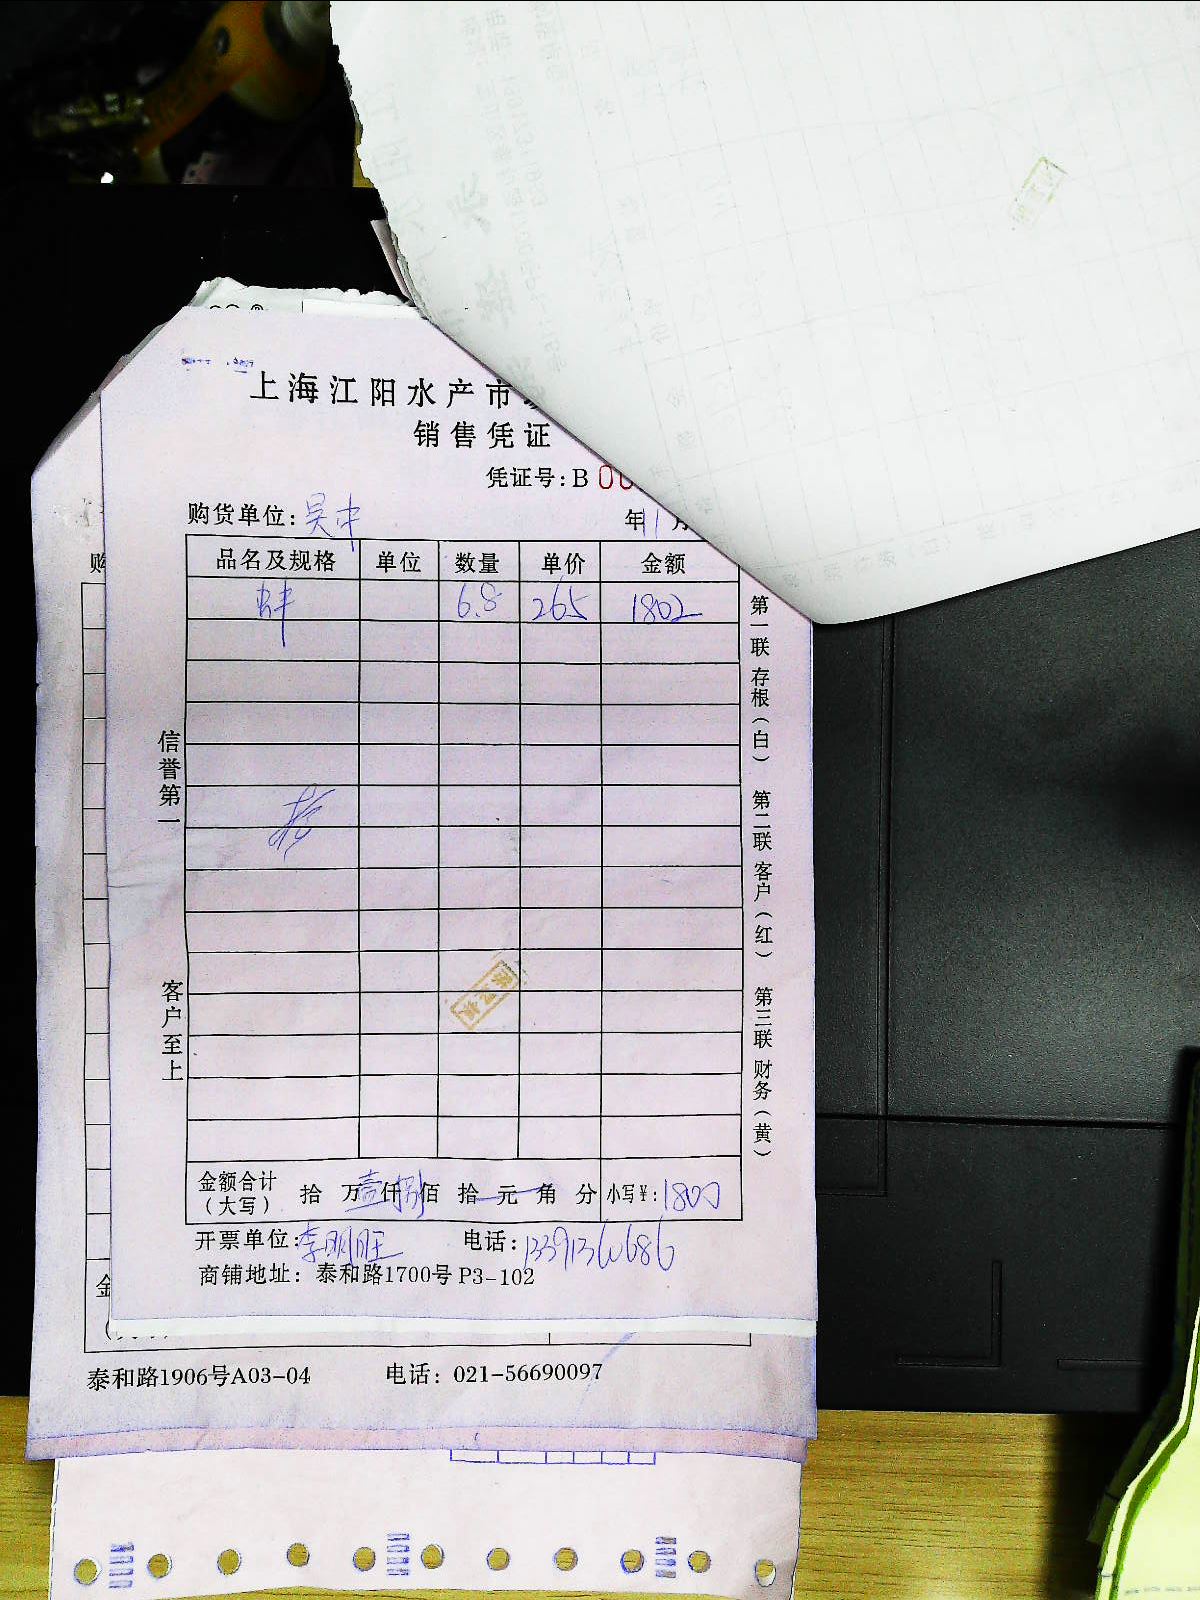 上海江阳水产市
销售凭证
凭证号:B 00
购货单位: 吴中 年 11 月
品名及规格 单位 数量 单价 金额
蚌 6.8 265 1802
信誉第一
客户至上
第一联 存根(白) 第二联 客户(红) 第三联 财务(黄)
金额合计(大写) 拾 万 壹 仟 捌 佰 拾 元 角 分 小写¥: 1800
开票单位: 李明旺 电话:
商铺地址: 泰和路1700号 P3-102
泰和路1906号A03-04 电话: 021-56690097